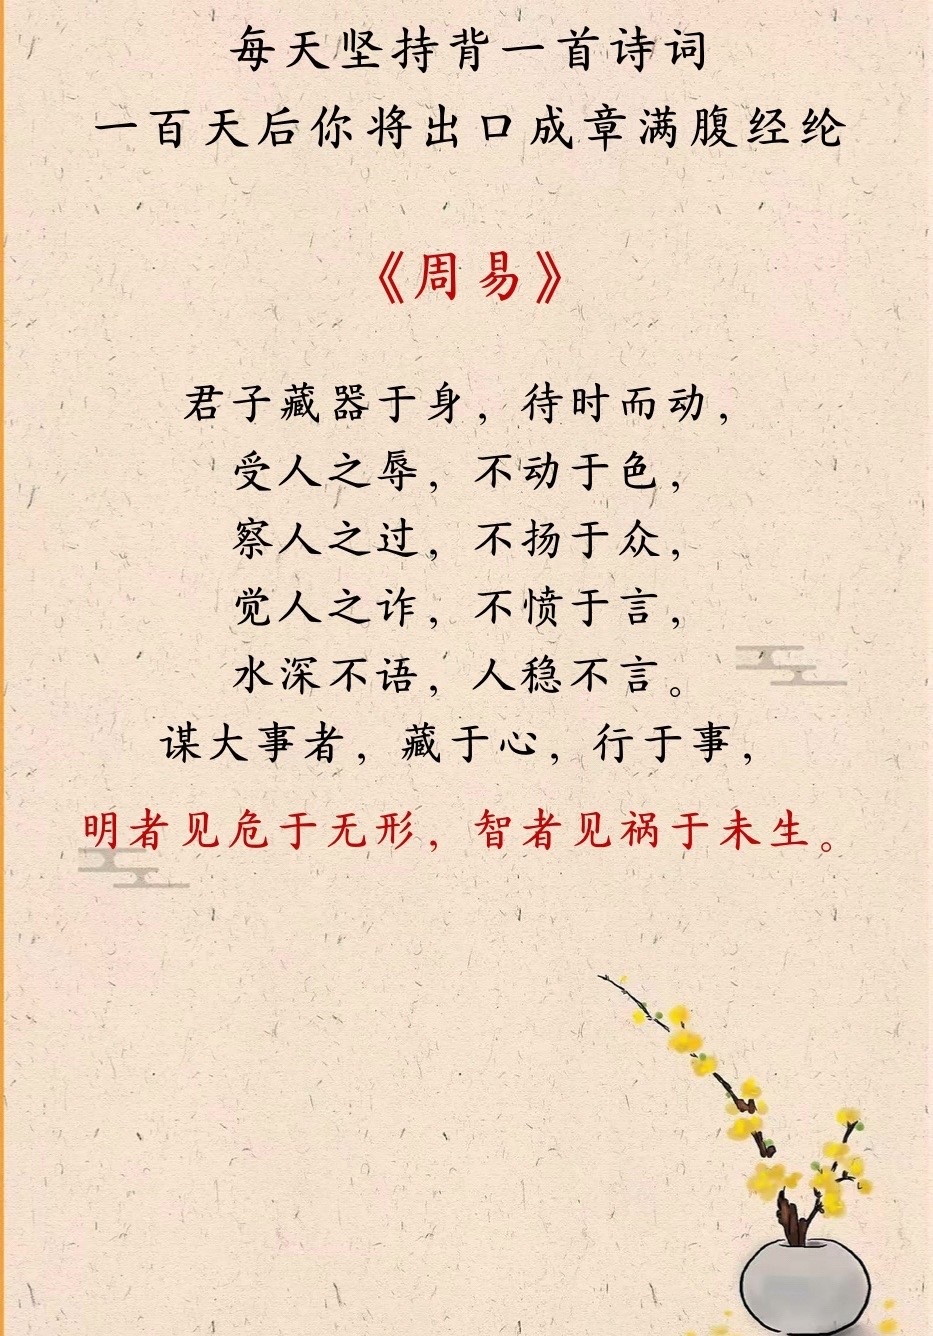 每天坚持背一首诗词
一百天后你将出口成章满腹经纶
《周易》
君子藏器于身，待时而动，
受人之辱，不动于色，
察人之过，不扬于众，
觉人之诈，不愤于言，
水深不语，人稳不言。
谋大事者，藏于心，行于事，
明者见危于无形，智者见祸于未生。